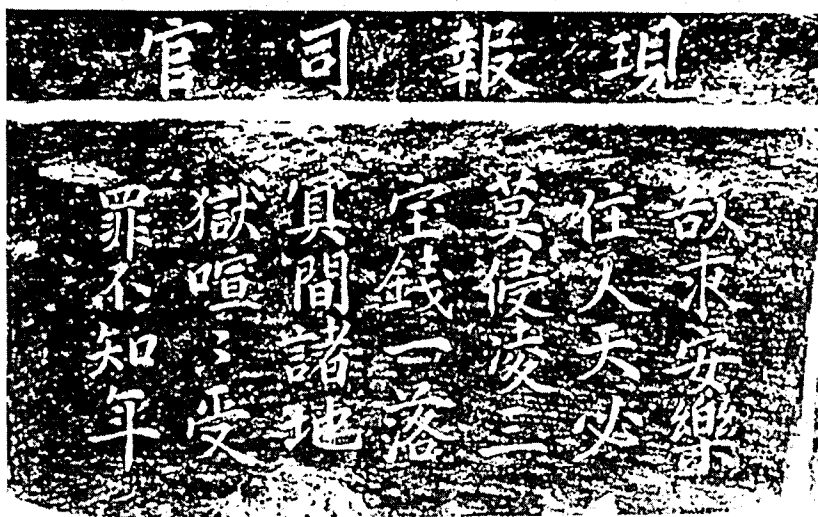 現報司官
欲求安樂
住人天必
莫侵凌三
宝錢一落
冥間諸地
獄喧〻受
罪不知年